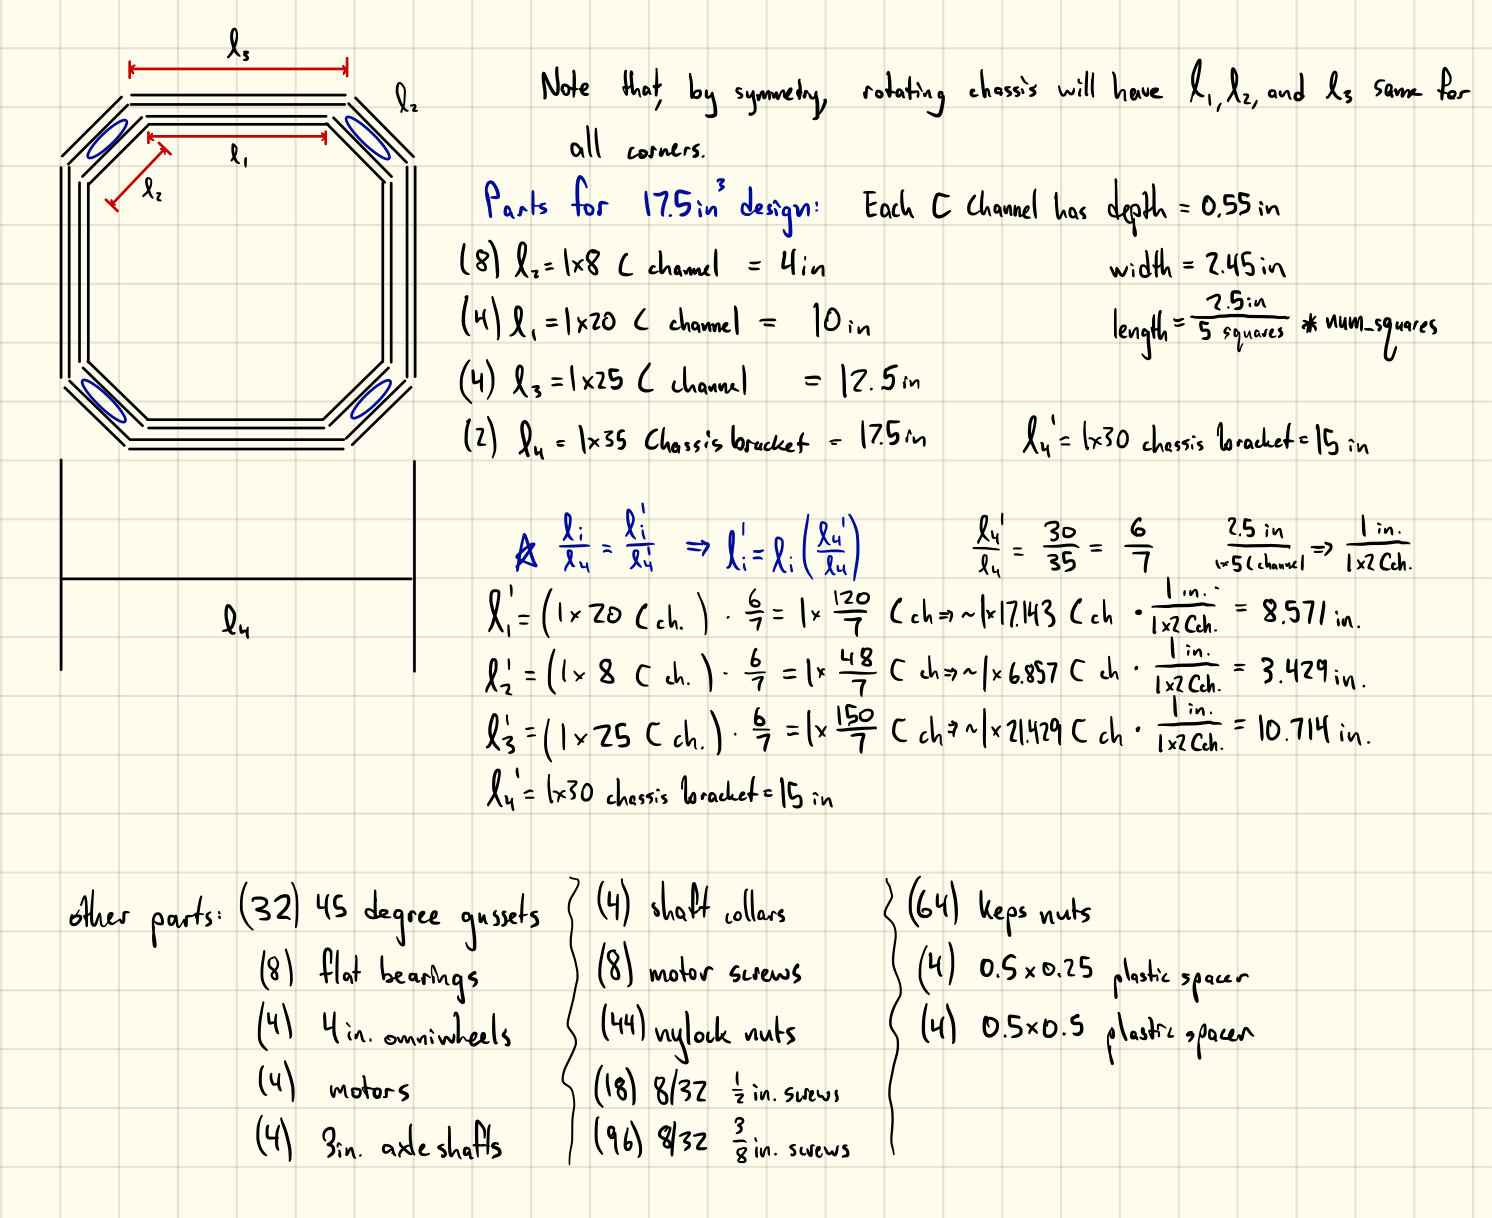 l₃
l₂
l₁
l₂
l₄
Note that, by symmetry, rotating chassis will have l₁, l₂, and l₃ same for
all corners.
Parts for 17.5in³ design: Each C Channel has depth = 0.55 in
(8) l₂ = 1x8 C channel = 4in
width = 2.45 in
(4) l₁ = 1x20 C channel = 10 in
length = 2.5in / 5 squares * num_squares
(4) l₃ = 1x25 C channel = 12.5 in
(2) l₄ = 1x35 Chassis bracket = 17.5 in
l₄' = 1x30 chassis bracket = 15 in
☆ lᵢ/l₄ = lᵢ'/l₄' ⇒ lᵢ' = lᵢ (l₄'/l₄)
l₄'/l₄ = 30/35 = 6/7
2.5 in / 1x5 C channel ⇒ 1 in. / 1x2 Cch.
l₁' = (1x20 C ch.) · 6/7 = 1x 120/7 C ch ⇒ ~1x17.143 C ch · 1 in. / 1x2 Cch. = 8.571 in.
l₂' = (1x 8 C ch.) · 6/7 = 1x 48/7 C ch ⇒ ~1x6.857 C ch · 1 in. / 1x2 Cch. = 3.429 in.
l₃' = (1x25 C ch.) · 6/7 = 1x 150/7 C ch ⇒ ~1x21.429 C ch · 1 in. / 1x2 Cch. = 10.714 in.
l₄' = 1x30 chassis bracket = 15 in
other parts: (32) 45 degree gussets
(8) flat bearings
(4) 4in. omniwheels
(4) motors
(4) 3in. axle shafts
(4) shaft collars
(8) motor screws
(44) nylock nuts
(18) 8/32 1/2 in. screws
(96) 8/32 3/8 in. screws
(64) keps nuts
(4) 0.5x0.25 plastic spacer
(4) 0.5x0.5 plastic spacer